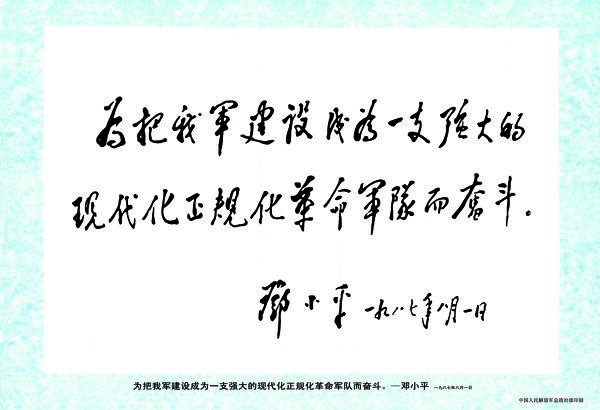 为把我軍建设成为一支强大的
现代化正規化革命軍隊而奋斗。
鄧小平 一九八七年八月一日
为把我军建设成为一支强大的现代化正规化革命军队而奋斗。—邓小平 一九八七年八月一日
中国人民解放军总政治部印制